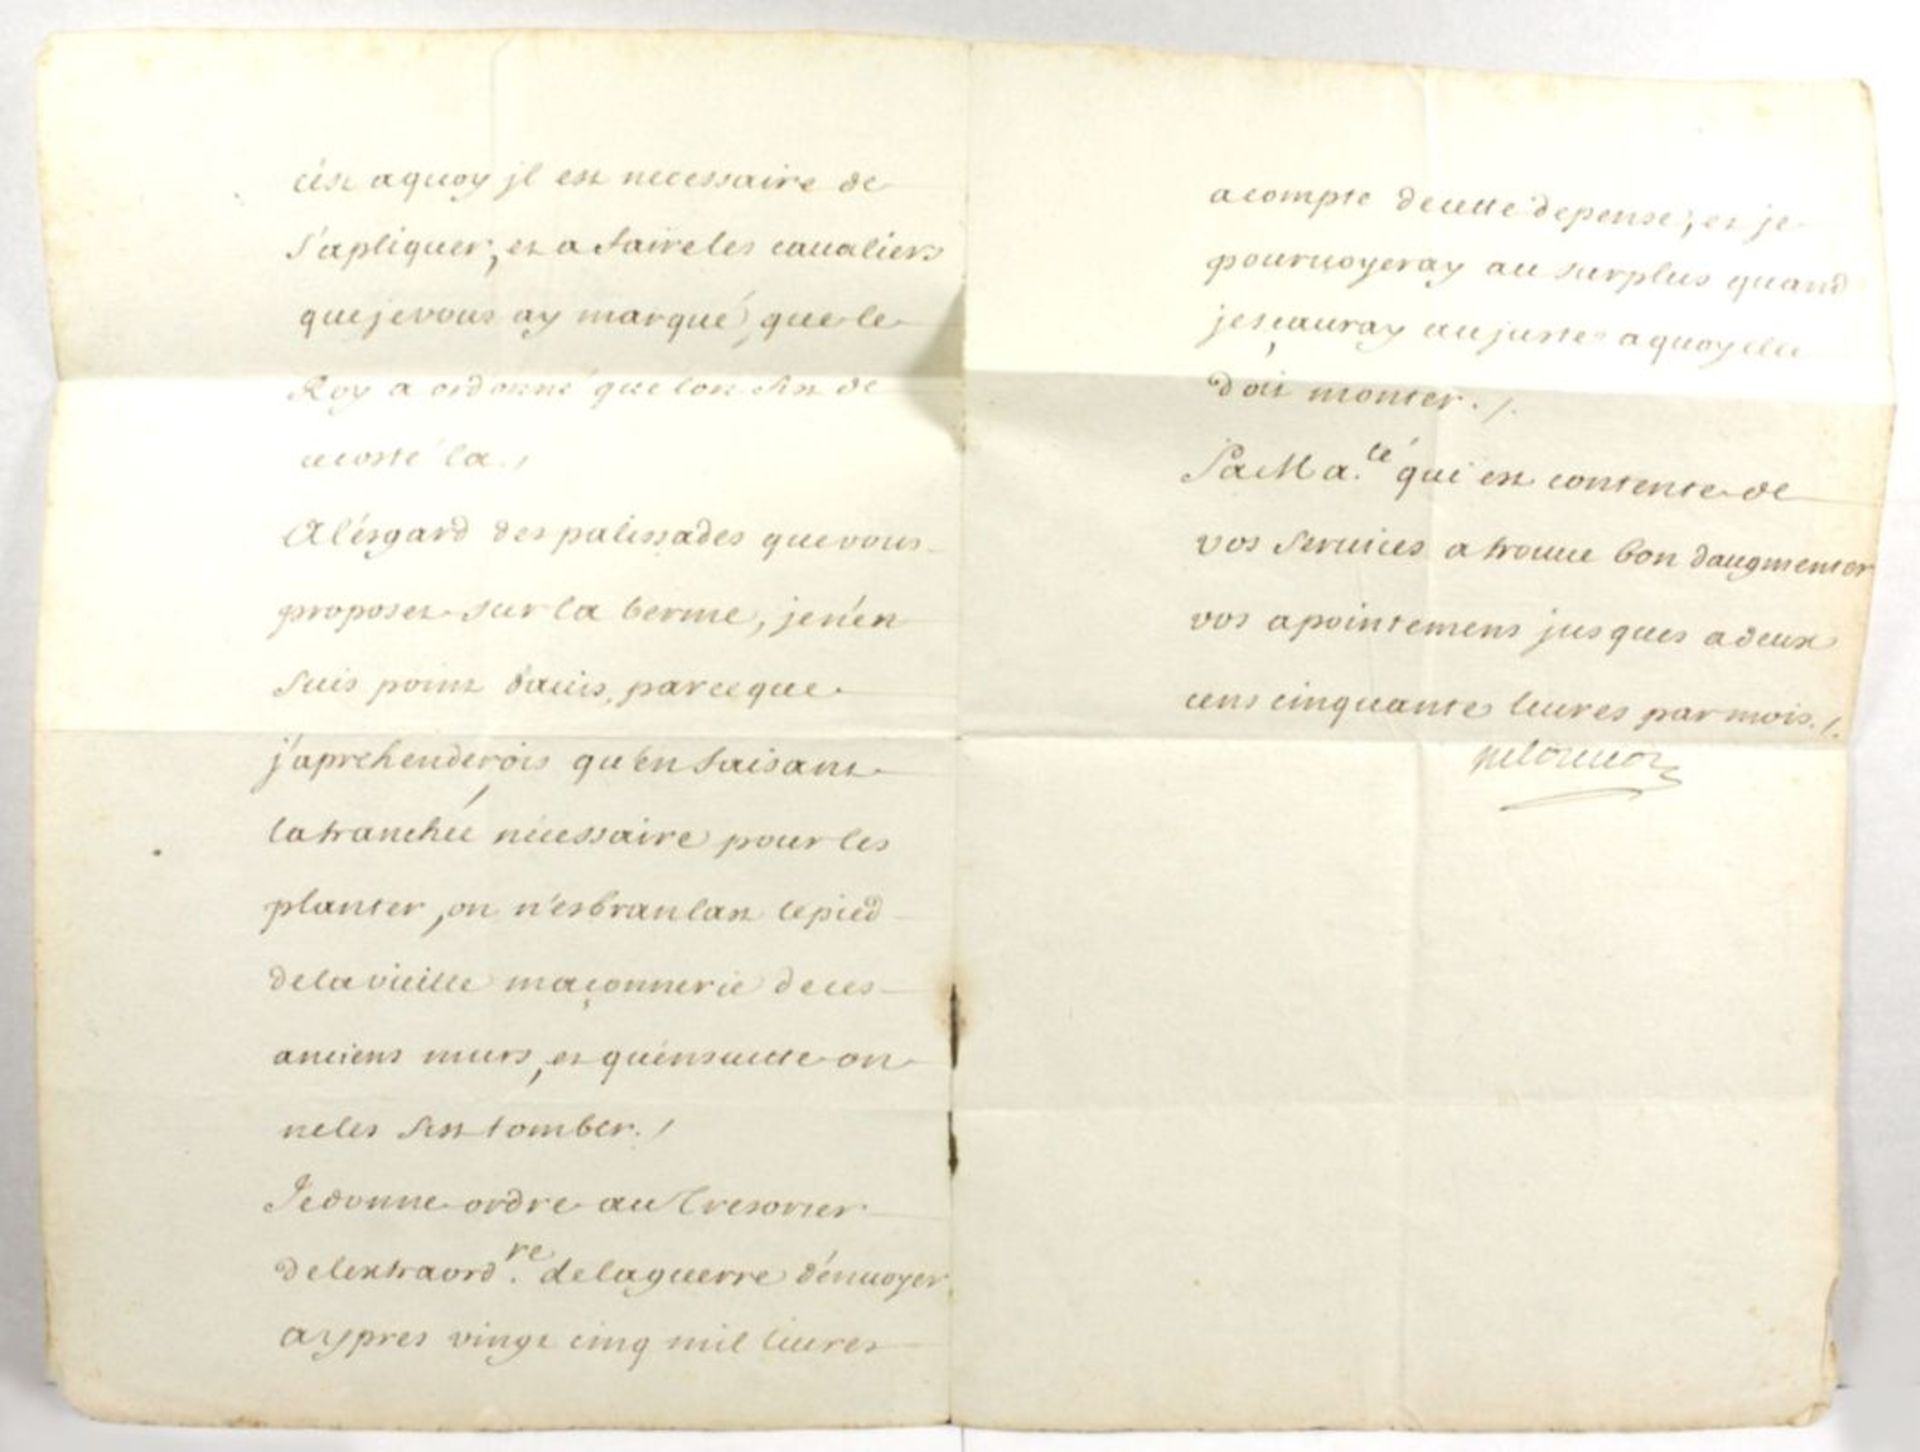 c'est aquoy jl est necessaire de
s'apliquer, et a faire les caualiers
que je vous ay marqué, que le
Roy a ordonné que lon fist de
ce costé la./
A l'ésgard des palissades que vous
proposez sur la berme, je n'én
suis point d'auis, parce que
j'aprehenderois qu'en faisant
la tranchée nécessaire pour les
planter, on n'esbranlast le pied
de la vieille maçonnerie de ces
anciens murs, et qu'ensuitte on
ne les fist tomber./
Je donne ordre au Tresorier
de lextraord.re de la guerre d'énuoyer
a ypres vingt cinq mil liures
a compte de cette depense, et je
pouruoyeray au surplus quand
je sçauray au juste a quoy elle
doit monter./.
Sa Ma.té qui est contente de
vos seruices a trouué bon daugmenter
vos apointemens jusques a deux
cens cinquante liures par mois./.